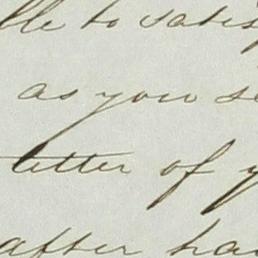 to satis
as you se
letter of y
after ha